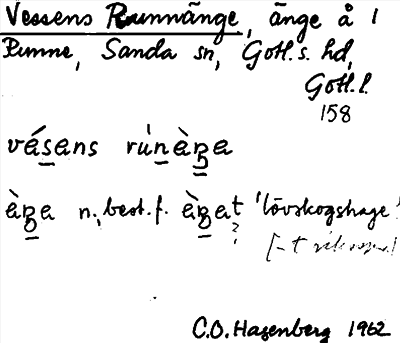 Vessens Runnänge, änge å 1
Runne, Sanda sn, Gotl. s. hd,
Gotl. l.
158
väsens rúnàŋa
àŋa n., best. f. àŋat 'lövskogshage'
?
C.O. Hagenberg 1962